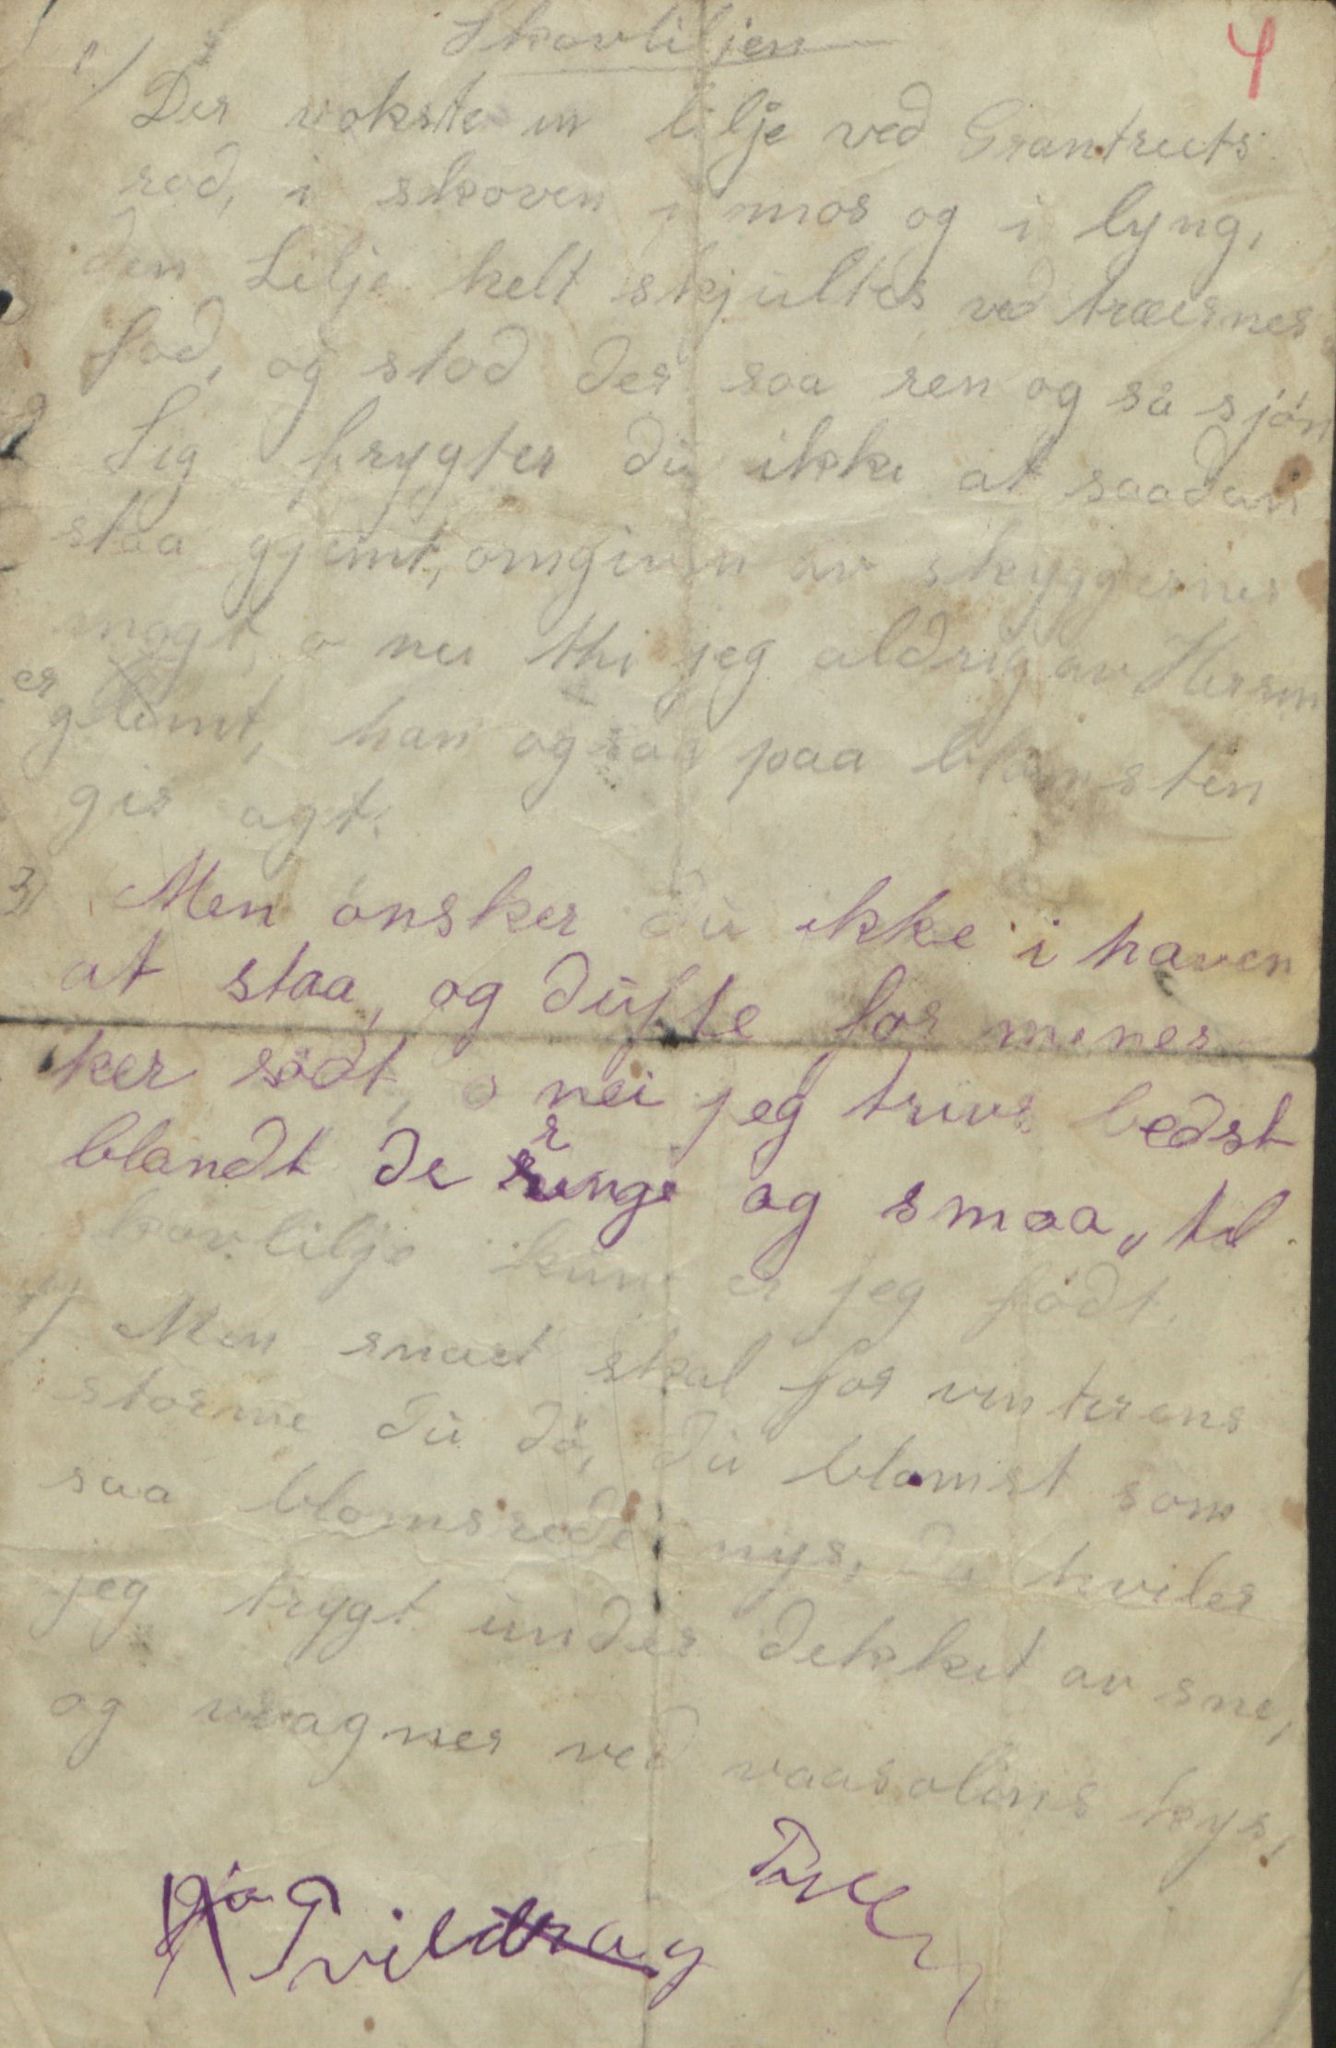 Skovliljen
4
1) Der vokste en lilje ved Grantreets
rod, i skoven i mos og i lyng,
den Lilje helt skjultes ved træernes
fod, og stod der saa ren og så sjön
2 Sig frygter du ikke at saadan
staa gjemt, omgiven av skyggernes
magt, o nei thi jeg aldrig av Herren
er glemt, han ogsaa paa blomsten
gir agt.
3) Men ønsker du ikke i haven
at staa, og dufte for mennes
ker södt, o nei jeg trivs bedst
blandt de ringe og smaa, til
skovlilje kun er jeg födt.
4) Men snart skal for vinterens
storme du dö, du blomst som
saa blomsrede nys, da hviler
jeg trygt under dekket av sne,
og vaagner ved vaarsolens kys,